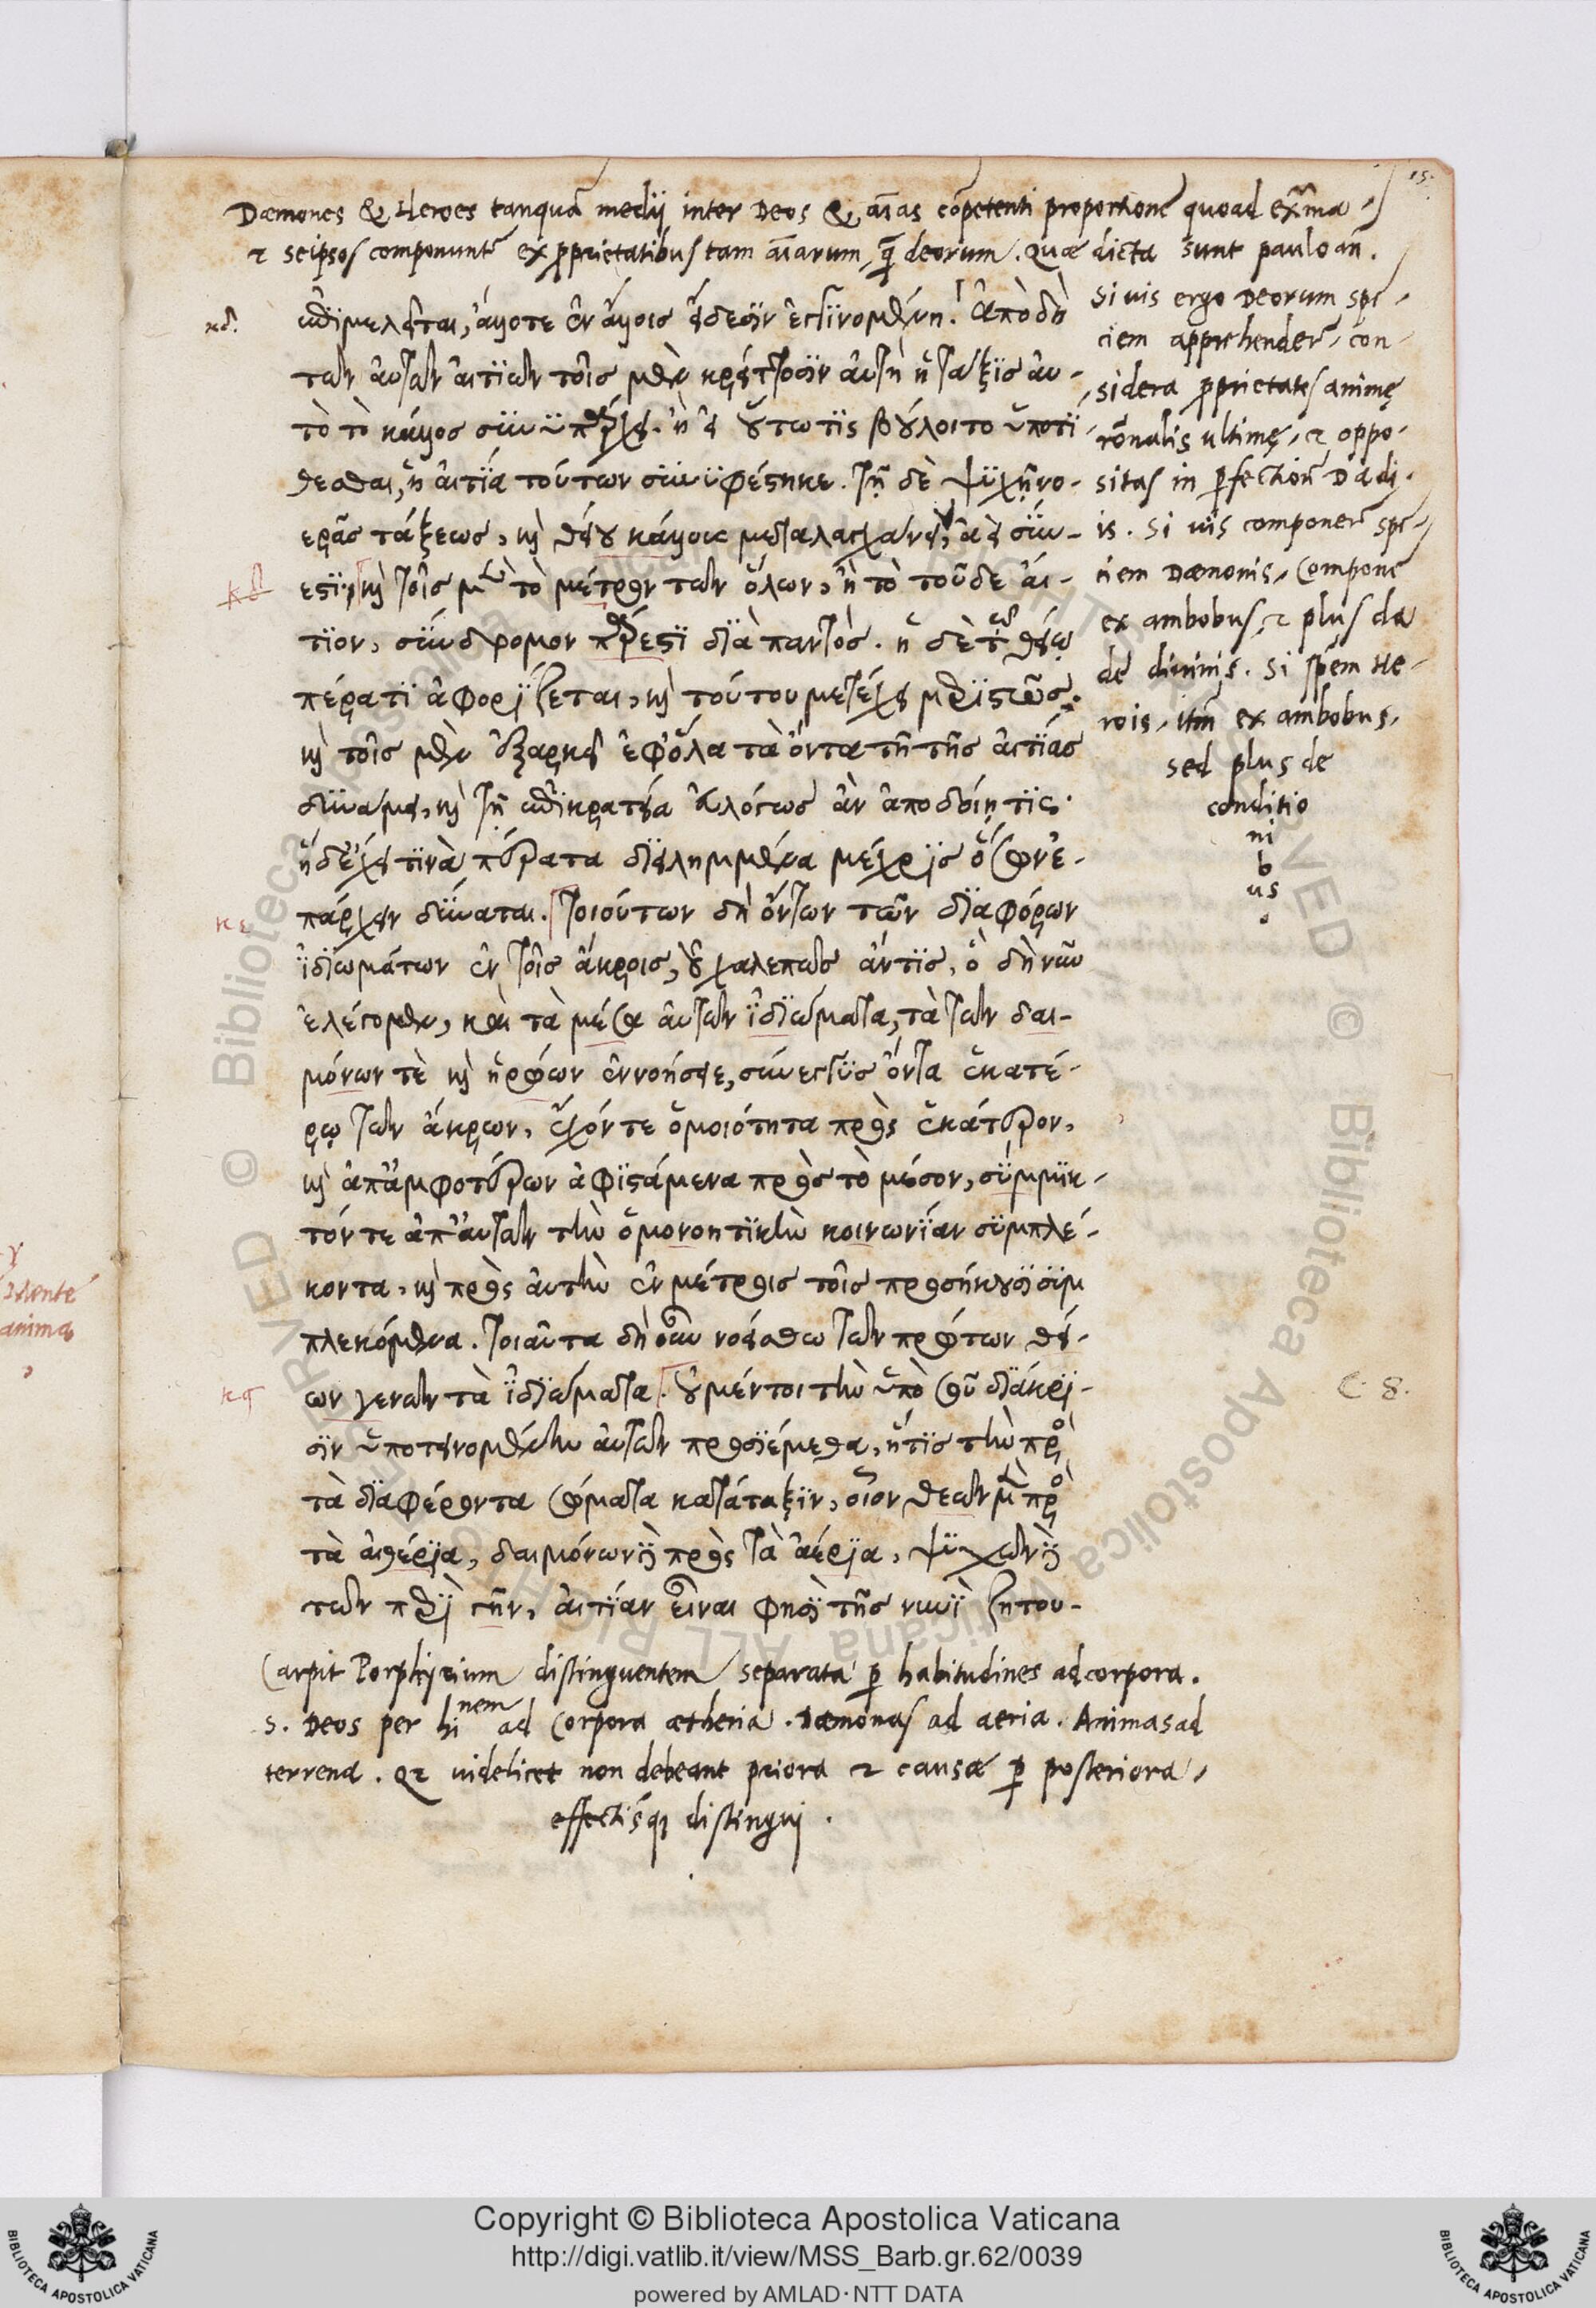 Dæmones & Heroes tanquã medij inter Deos & aĩas cõpetenti proportione quoad exm̃a
& seipsos componuntr̃ ex proprietatibus tam aĩarum, q̃ deorum. Quæ dicta sunt paulo añ.
15.
κδ.
ἐπιμελεῖται, ἄλλοτε ἐν ἄλλοις εἴδεσιν ἐγγινομένη. ἀπὸ δὴ
τῶν αὐτῶν αἰτιῶν τοῖς μὲν κρείττοσιν αὐτὴ ἡ τάξις αὐ-
τὸ τὸ κάλλος συνυπάρχει. ἢ εἰ οὕτω τις βούλοιτο ὑποτί-
θεσθαι, ἡ αἰτία τούτων συνυφέστηκε. τῇ δὲ ψυχῇ νο-
ερᾶς τάξεως, καὶ θείου κάλλους μεταλαγχάνειν, ἀεὶ σύν-
εστι, καὶ τοῖς μὲν τὸ μέτρον τῶν ὅλων, ἢ τὸ τοῦδε αἴ-
τιον, σύνδρομον πάρεστι διὰ παντὸς. ἡ δὲ τῷ θείῳ
πέρατι ἀφορίζεται, καὶ τούτου μετέχει μεριστῶς.
καὶ τοῖς μὲν ἐξαρκεῖ ἐφ' ὅλα τὰ ὄντα τῇ τῆς αἰτίας
δυνάμει, καὶ τῇ ἐπικρατείᾳ εὐλόγως ἂν ἀποδοίη τις.
ἡ δ' ἔχει τινὰ πέρατα διειλημμένα μέχρις ὅσων ἐ-
κε
πάρχειν δύναται. τοιούτων δὴ ὄντων τῶν διαφόρων
ἰδιωμάτων ἐν τοῖς ἄκροις, οὐ χαλεπῶς ἄν τις, ὃ δὴ νῦν
ἐλέγομεν, καὶ τὰ μέσα αὐτῶν ἰδιώματα, τὰ τῶν δαι-
μόνων τὲ καὶ ἡρώων ἐννοήσειε, σύνεγγυς ὄντα ἑκατέ-
ρῳ τῶν ἄκρων, ἔχόν τε ὁμοιότητα πρὸς ἑκάτερον,
καὶ ἀπ' ἀμφοτέρων ἀφιστάμενα πρὸς τὸ μέσον, σύμμικ-
τόν τε ἀπ' αὐτῶν τὴν ὁμονοητικὴν κοινωνίαν συμπλέ-
κοντα, καὶ πρὸς αὐτὴν ἐν μέτροις τοῖς προσήκουσι συμ
πλεκόμενα. τοιαῦτα δὴ οὖν νοείσθω τῶν πρώτων θεί-
κϛ
ων γενῶν τὰ ἰδιώματα. οὐ μέντοι τὴν ὑπὸ σοῦ διάκρι-
σιν ὑποτεινομένην αὐτῶν προσιέμεθα, ἥτις τὴν πρὸς
τὰ διαφέροντα σώματα κατάταξιν, οἷον θεῶν μὲν πρὸς
τὰ αἰθέρια, δαιμόνων δὲ πρὸς τὰ ἀέρια, ψυχῶν δὲ
τῶν περὶ γῆν, αἰτίαν εἶναι φησὶ τῆς νυνὶ ζητου-
Si uis ergo Deorum spe-
ciem apprehender̃, con-
sidera proprietates animę
rõnalis ultimę, & oppo-
sitas in perfectionẽ Da di-
is. Si uis componer̃ spe-
ciem Dæmonis, Compone
ex ambobus, & plus da
de diuinis. Si spẽm He-
rois, itm̃ ex ambobus,
sed plus de
conditio
ni
b
us
.
C. 8.
Carpit Porphyrium distinguentem separata per habitudines ad corpora.
s. Deos per hinem ad Corpora ætheria. Dæmonas ad aeria. Animas ad
terrena. Qz uidelicet non debeant priora & causæ per posteriora,
effectisq; distingui.
Mente
anima